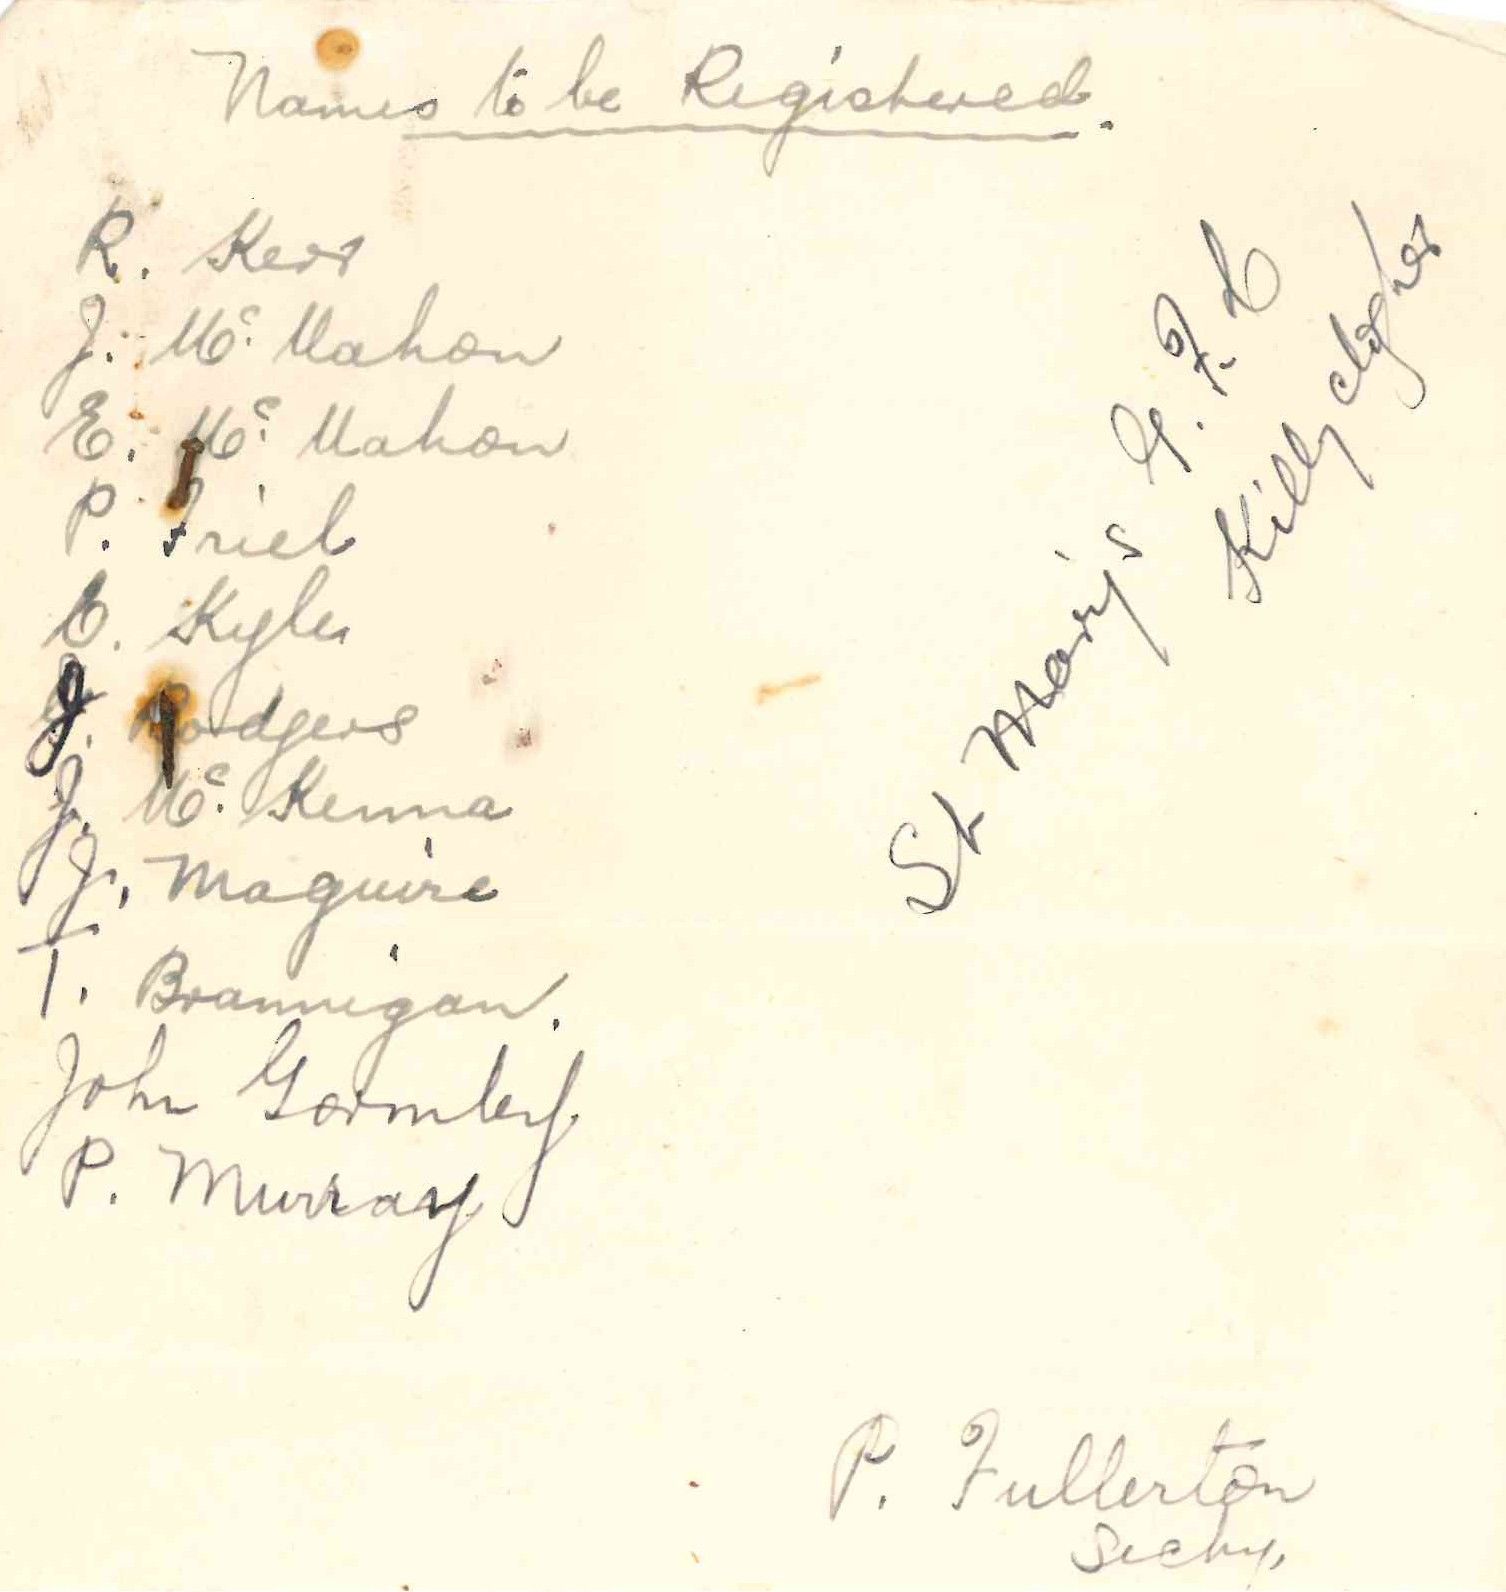 Names to be Registered.
R. Kerr
J. Mc. Mahon
E. Mc. Mahon
P. Friel
C. Kyle
J. Rodgers
J. Mc. Kenna
J. Maguire
T. Brannigan.
John Gormley
P. Murray
St Mary's G.F.C
Killyclogher
P. Fullerton
Secty.